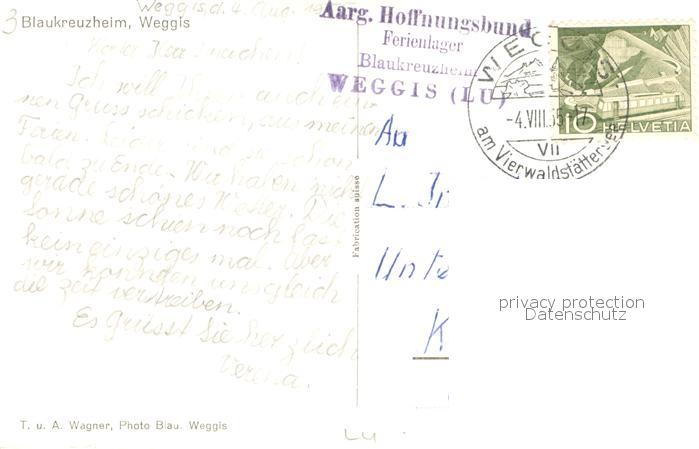 Weggis, d. 4. Aug. 19
3 Blaukreuzheim, Weggis
Aarg. Hoffnungsbund
Ferienlager
Blaukreuzheim
WEGGIS (LU)
WEGGIS
-4.VIII.55-17
VII
am Vierwaldstättersee
10 HELVETIA
Ich will Ihnen auch ein-
nen Gruss schicken, aus meinen
Ferien. Leider sind sie schon
bald zu Ende. Wir haben nicht
gerade schönes Wetter. Die
Sonne schien noch fast
kein einziges mal. Aber
wir konnden uns gleich
die Zeit vertreiben.
Es Grüsst Sie herzlich
Verena.
Fabrication suisse
An
L. 
Unte
K
privacy protection
Datenschutz
T. u. A. Wagner, Photo Blau. Weggis
LU